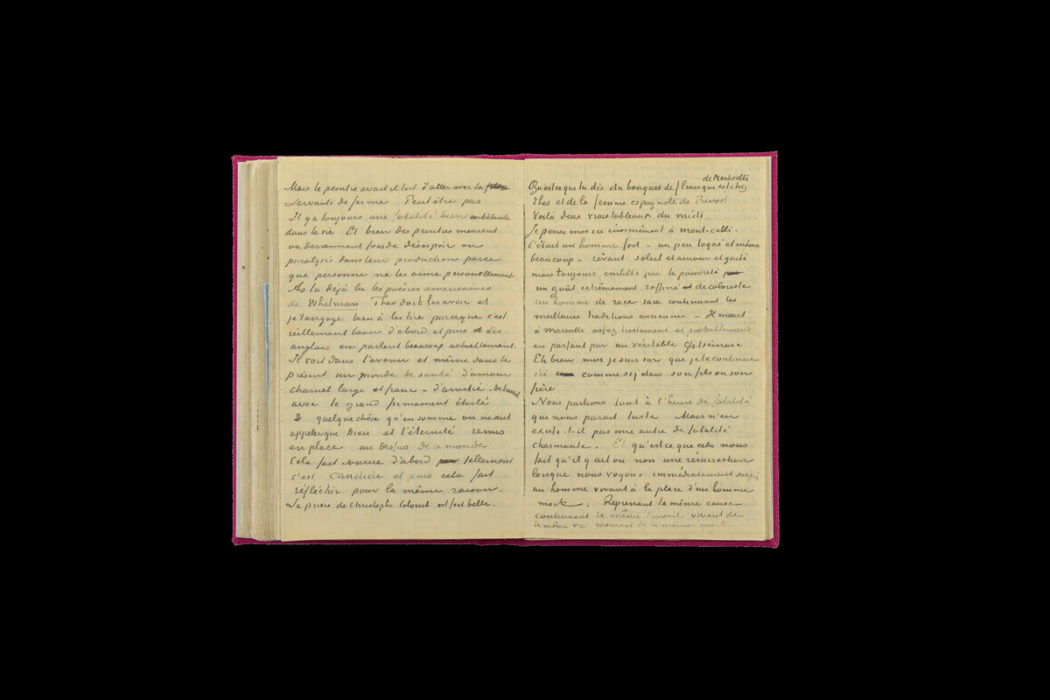 Mais le peintre avait et tort d'aller avec la
servante de ferme Peut être pas
Il y a toujours une fatalité bien embêtante
dans la vie Et bien des peintres meurent
ou deviennent fous de désespoir ou
paralysés dans leur production parce
que personne ne les aime personellement.
As tu déjà lu les poésies americaines
de Whitman Theo doit les avoir et
je t'engage bien à les lire parceque c'est
réellement beau d'abord et puis des
anglais en parlent beaucoup actuellement.
Il voit dans l'avenir et même dans le
présent un monde de santé d'amour
charnel large et franc – d'amitié – de travail
avec le grand firmament étoilé
quelque chose qu'en somme on ne peut
appeler que Dieu et l'éternité remis
en place au dessus de ce monde
Cela fait sourire d'abord tellement
c'est candide et puis cela fait
réfléchir pour la même raison.
La prière de Christophe Colomb est fort belle.
de Monticelli
Qu'est ce que tu dis du bouquet de fleurs qui est chez
Theo et de la femme espagnole de Prévost
Voilà deux vrais tableaux du midi
Je pense moi ici enormément à monticelli.
C'était un homme fort – un peu toqué et même
beaucoup – rêvant soleil et amour et gaité
mais toujours embêté par la pauvreté
un goût extrêmement raffiné de coloriste
un homme de race rare continuant les
meilleures traditions anciennes – Il meurt
à Marseille assez tristement et probablement
en passant par un véritable Gethsémané
Eh bien moi je suis sur que je le continue
ici comme si j'étais son fils ou son
frère
Nous parlions tout à l'heure de fatalité
qui nous parait triste Mais n'en
existe-t-il pas une autre de fatalité
charmante. Et qu'est ce que cela nous
fait qu'il y ait ou non une résurrection
lorsque nous voyons immédiatement surgir
un homme vivant à la place d'un homme
mort. Reprenant la même cause
continuant le même travail vivant de
la même vie mourant de la même mort